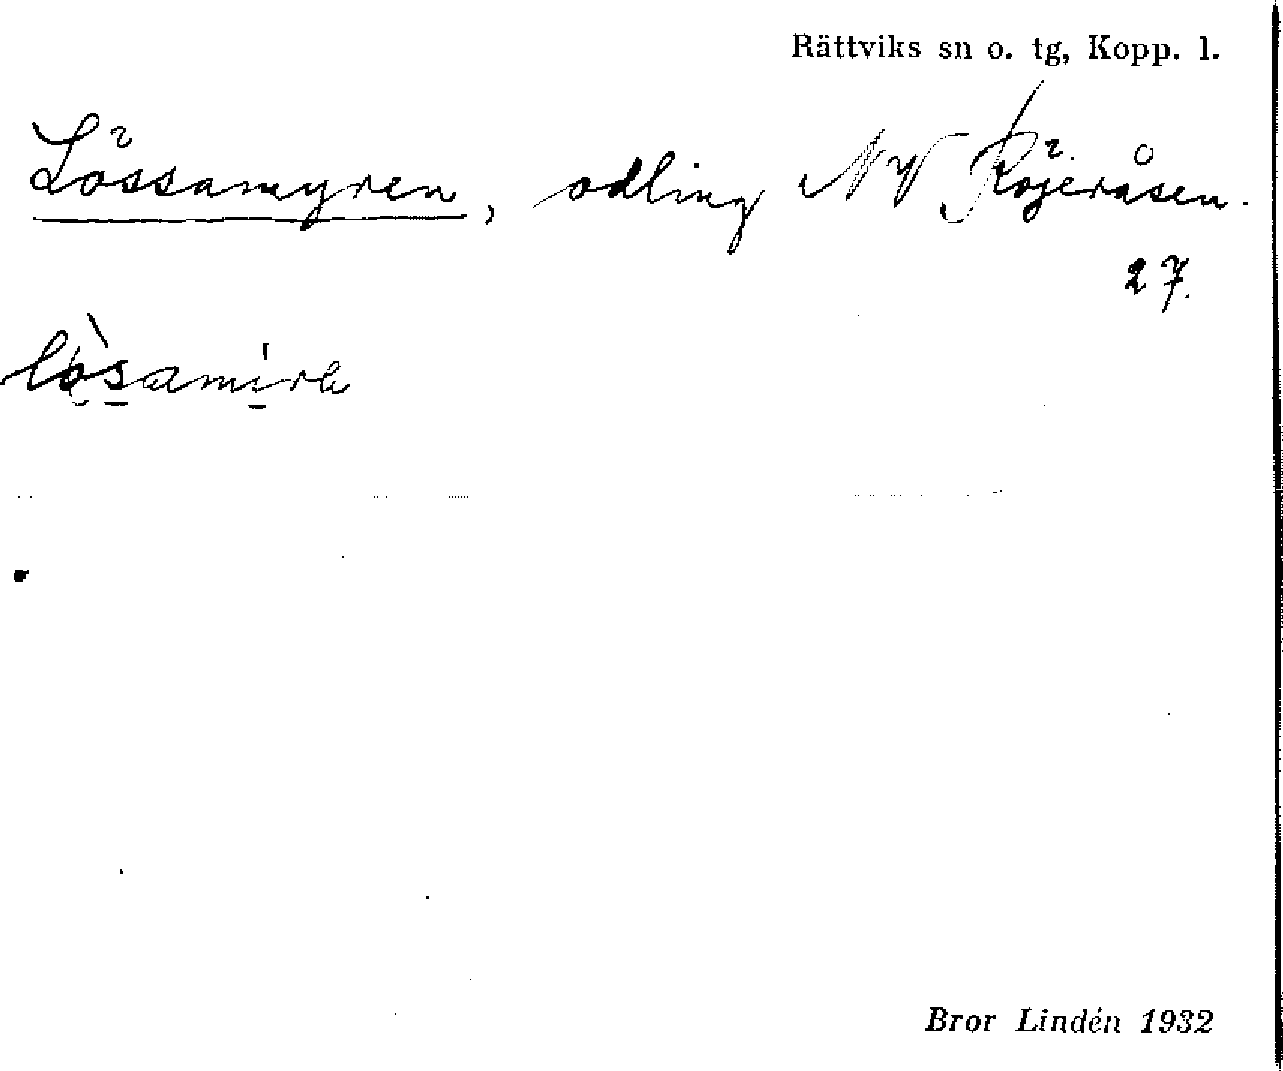 Rättviks sn o. tg, Kopp. l.
Lössamyren, odling NV Röjeråsen.
27.
Bror Lindén 1932